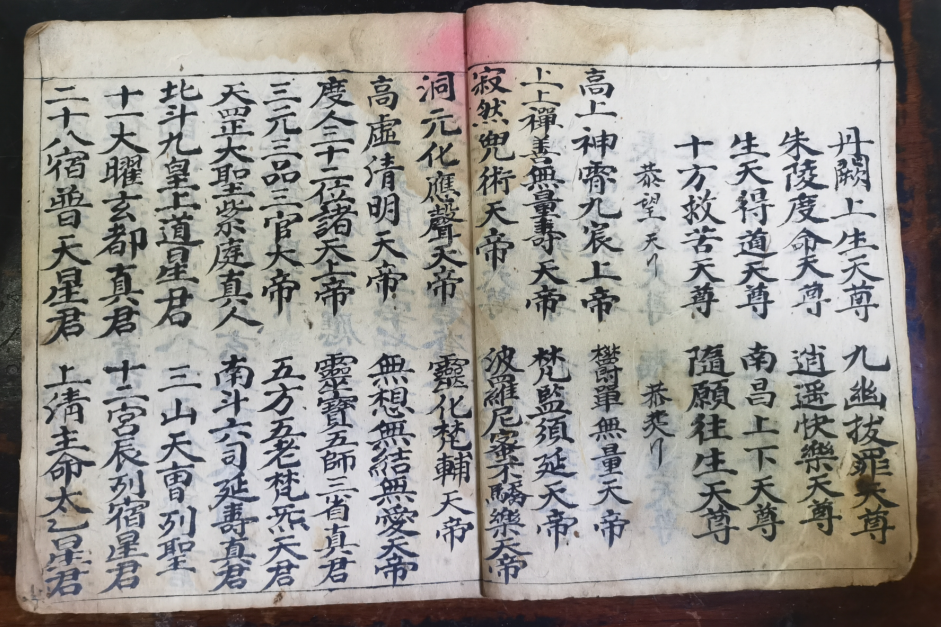 丹闕上生天尊 九幽拔罪天尊
朱陵度命天尊 逍遥快樂天尊
生天得道天尊 南昌上下天尊
十方救苦天尊 隨願往生天尊
恭望天 恭
高上神霄九宸上帝 欝單無量天帝
上上禪善無量壽天帝 梵監須延天帝
寂然兜術天帝 波羅尼蜜不驕樂天帝
洞元化應聲天帝 靈化梵輔天帝
高虛清明天帝 無想無結無愛天帝
度人三十二位諸天上帝 靈寶五師三省真君
三元三品三官大帝 五方五老梵炁天君
天罡大聖紫庭真人 南斗六司延壽真君
北斗九皇上道星君 三山天曹列聖
十一大曜玄都真君 十二宮辰列宿星君
二十八宿普天星君 上清主命太乙星君